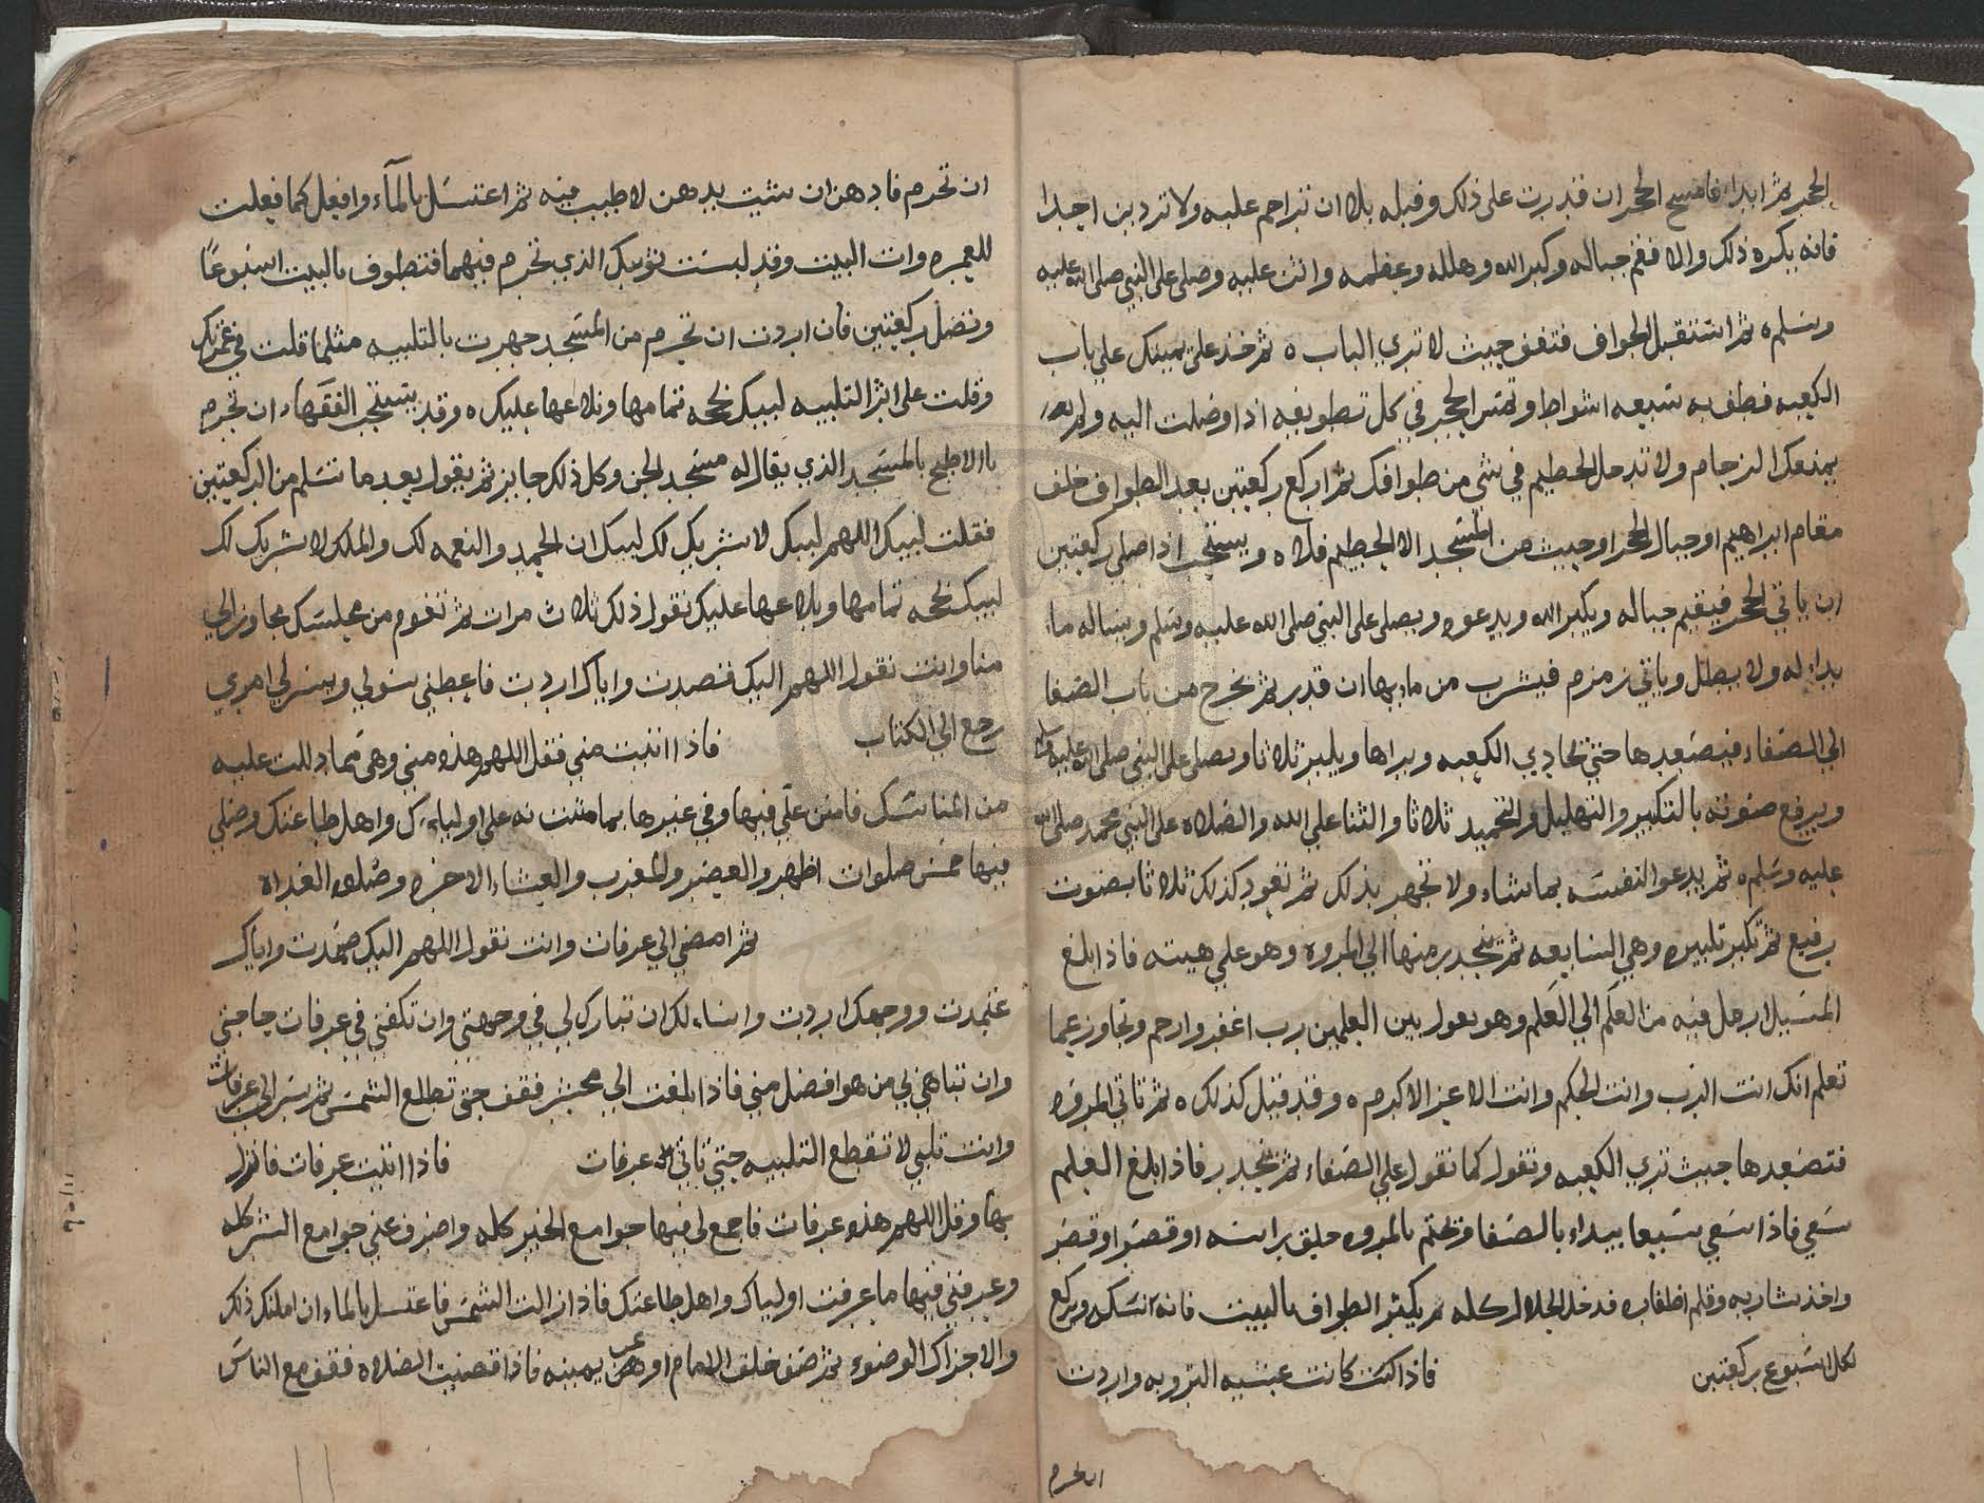 الحجر ثم ابدا فامسح الحجر ان قدرت على ذلك وقبله بلا ان تزاحم عليه ولا تردين احدا
فانه يكره ذلك والا فقم حياله وكبر الله وهلله وعظمه واثن عليه وصلى على النبي صلى الله عليه
وسلم ثم استقبل الطواف فتقف حيث لا تري الباب ثم خذ على يمينك علي باب
الكعبه فطف به سبعه اشواط وتمس الحجر في كل تطويفه اذا وصلت اليه ولم
يمنعك الزحام ولا تدخل الحطيم في شي من طوافك ثم اركع ركعتين بعد الطواف خلف
مقام ابراهيم او حيال الحجر او حيث من المسجد الا الحطيم فلا ويستحب اذا صلى ركعتين
ان ياتي الحجر فيقيم حياله ويكبر الله ويدعوه ويصلى على النبي صلى الله عليه وسلم ويساله ما
بداء له ولا يطل وياتي زمزم فيشرب من مايها ان قدر ثم يخرج من باب الصفا
الي الصفاء فيصعدها حتي تحاذي الكعبه ويراها ويكبر ثلاثا ويصلى على النبي صلى الله عليه
ويرفع صوته بالتكبير والتهليل والتحميد ثلاثا والثنا علي الله والصلاه على النبي محمد صلى الله
عليه وسلم ثم يدعوا لنفسه بما شاء ولا تجهر بذلك ثم تعود كذلك ثلاثا بصوت
رفيع ثم تكبر تكبيره وهي السابعه ثم ينحدر منها الي المروه وهو علي هينته فاذا بلغ
المسيل ارمل فيه من العلم الي العلم وهو يقول بين العلمين رب اغفر وارحم وتجاوز عما
تعلم انك انت الرب وانت الحكم وانت الاعز الاكرم وقد قيل كذلك ثم تاتي المروه
فتصعدها حيث تري الكعبه وتقول كما تقول علي الصفاء ثم ينحدر فاذا بلغ العلم
سعي فاذا سعي سبعا يبداء بالصفا وتختم بالمروه حلق راسه او قصر
واخذ شاربه وقلم اظفاره فدخل الحلال كله ثم يكثر الطواف بالبيت فانه انسكه ويركع
لكل اسبوع ركعتين فاذا كنت كانت عشيه الترويه واردت
ان تحرم
ان تحرم فادهن ان شئت بدهن لا طيب فيه ثم اغتسل بالمآء وافعل كما فعلت
للعمره وات البيت وقد لبست ثوبيك الذي تحرم فيهما فتطوف بالبيت اسبوعًا
وتصل ركعتين فان اردت ان تحرم من المسجد جهرت بالتلبيه مثلما قلت في عمرتك
وقلت على اثر التلبيه لبيك بحجه تمامها وبلاغها عليك وقد يستحب الفقهاء ان تحرم
بالابطح بالمسجد الذي يقال له مسجد الجن وكل ذلك جايز ثم يقول بعد ما تسلم من الركعتين
فقلت لبيك اللهم لبيك لا شريك لك لبيك ان الحمد والنعمه لك والملك لا شريك لك
لبيك بحجه تمامها وبلاغها عليك تقول ذلك ثلاث مرات ثم تقوم من مجلسك مجاوز الي
منا وانت تقول اللهم اليك قصدت واياك اردت فاعطني سولي ويسر لي امري
رجع الي الكتاب فاذا اتيت مني فقل اللهم هذه مني وهي مما دللت عليه
من المناسك فامنن علّي فيها وفي غيرها بما مننت به على اولياءك واهل طاعتك وصلي
فيها خمس صلوات الظهر والعصر والمغرب والعشاء الاخره وصلوه الغداه
ثم امضي الي عرفات وانت تقول اللهم اليك صمدت واياك
عتمدت ووجهك اردت واسالك ان تبارك لي في وجهتي وان تكفني في عرفات حاجتي
وان تباهي بي من هو افضل مني فاذا بلغت الي محسر فقف حتى تطلع الشمس ثم سر الي عرفات
وانت تلبي لا تقطع التلبيه حتي تاتي عرفات فاذا اتيت عرفات فانزل
بها وقل اللهم هذه عرفات فاجمع لي فيها جوامع الخير كله واصرف عني جوامع الشر كله
وعرفني فيها ما عرفت اولياك واهل طاعتك فاذا زالت الشمس فاغتسل بالماء ان امكنك ذلك
والا جزاك الوضوء ثم صف خلف الامام او عن يمينه فاذا قضيت الصلاه فقف مع الناس